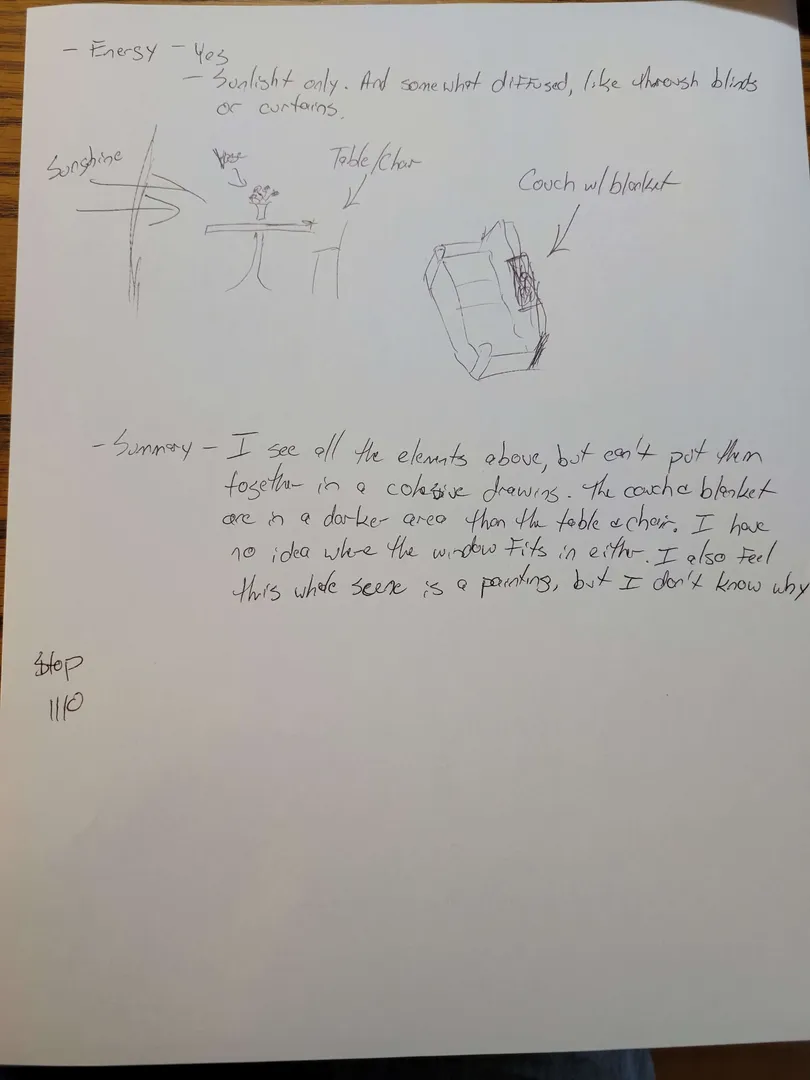 - Energy - Yes
- Sunlight only. And somewhat diffused, like through blinds
or curtains.
Sunshine
Vase
Table/Chair
Couch w/blanket
- Summary - I see all the elements above, but can't put them
together in a cohesive drawing. The couch & blanket
are in a darker area than the table & chair. I have
no idea where the window fits in either. I also feel
this whole scene is a painting, but I don't know why
Stop
1110